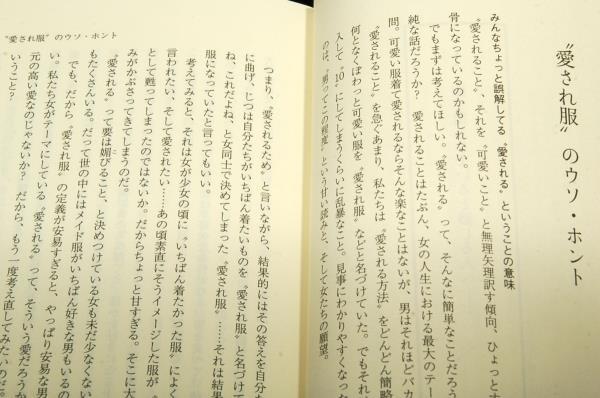 〝愛され服〟のウソ・ホント
みんなちょっと誤解してる〝愛される〟ということの意味
〝愛されること〟、それを〝可愛いこと〟と無理矢理訳す傾向、ひょっとす
骨になっているのかもしれない。
でもまずは考えてほしい。〝愛される〟って、そんなに簡単なことだろう
純な話だろうか？　愛されることはたぶん、女の人生における最大のテー
問。可愛い服着て愛されるならそんな楽なことはないが、男はそれほどバカ
何となくぽわっと可愛い服を〝愛され服〟などと名づけていた。でもそれ
〝愛されること〟を急ぐあまり、私たちは〝愛される方法〟をどんどん簡略
入して〝10〟にしてしまうくらいに乱暴なこと。見事にわかりやすくなった
のは、〝男ってこの程度〟という甘い読みと、そして女たちの願望。
〝愛され服〟のウソ・ホント
つまり、〝愛されるため〟と言いながら、結果的にはその答えを自分た
に曲げ、じつは自分たちがいちばん着たいものを〝愛され服〟と名づけて
ね、これだよね、と女同士で決めてしまった〝愛され服〟……それは結果
服になっていたと言ってもいい。
考えてみると、それは女が少女の頃に〝いちばん着たかった服〟によく
言われたい、そして愛されたい……あの頃素直にそうイメージした服が
として甦ってしまったのではないか。だからちょっと甘すぎる。そこに大
みがかぶさってきてしまうのだ。
〝愛される〟って要は媚びること、と決めつけている女も未だ少なくない
もたくさんいる。だって世の中にはメイド服がいちばん好きな男もいるの
でも、だから〝愛され服〟の定義が安易すぎると、やっぱり安易な男
い。私たち女がテーマにしている〝愛される〟って、そういう愛だろうか
元の高い愛なのじゃないか？　だから、もう一度考え直してみたいのだ。
いうこと？